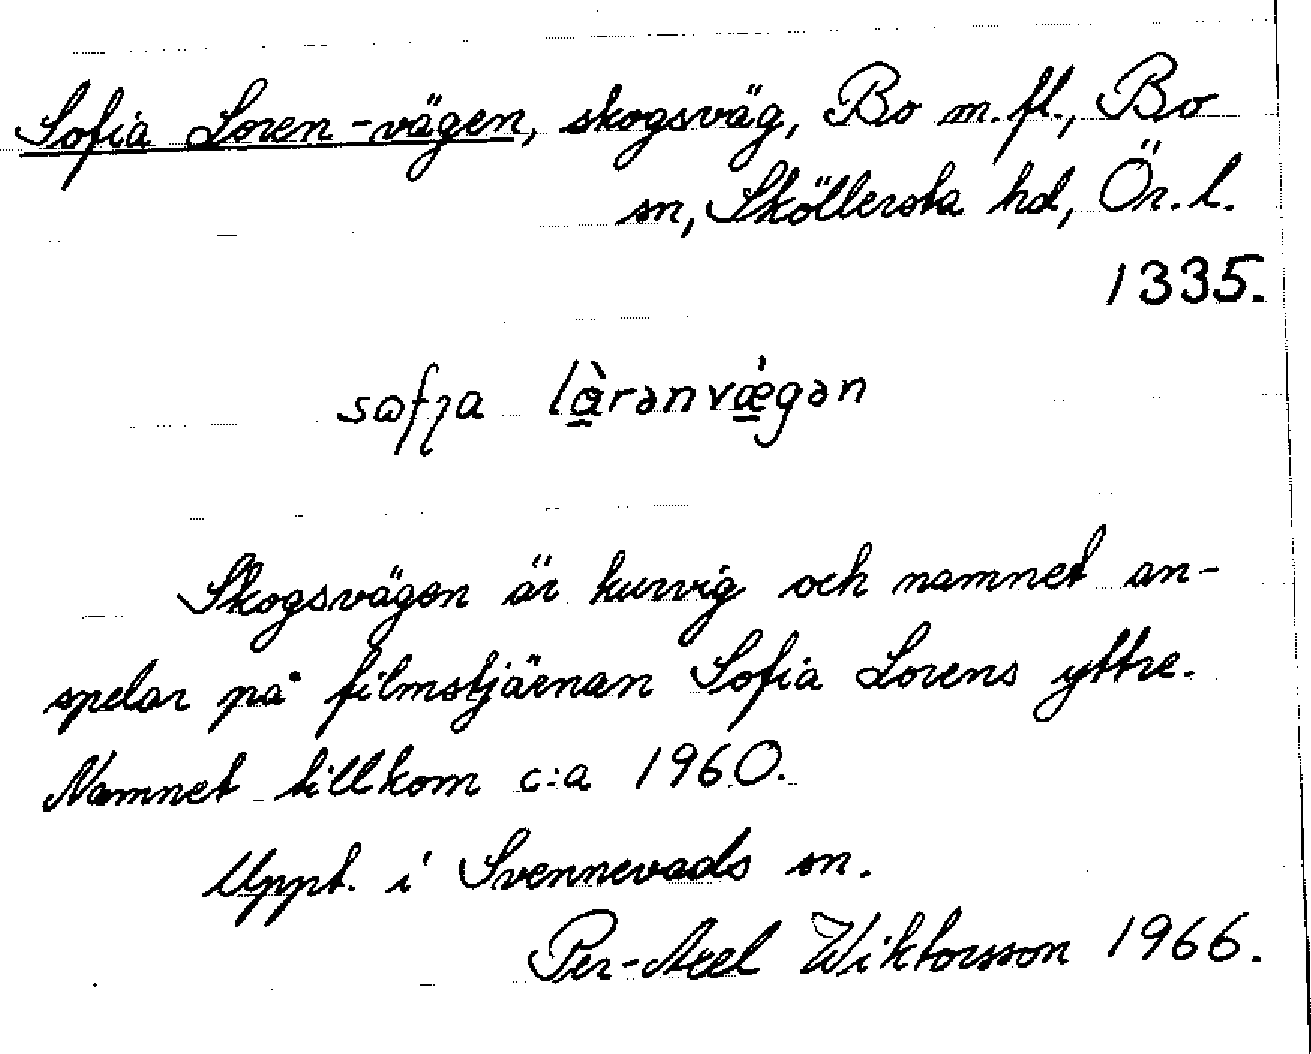 Sofia Loren-vägen, skogsväg, Bo m.fl., Bo
sn, Sköllersta hd, Ör. l.
1335.
Skogsvägen är kurvig och namnet an-
spelar på filmstjärnan Sofia Lorens yttre.
Namnet tillkom c:a 1960.
Uppt. i Svennevads sn.
Per-Axel Wiktorsson 1966.